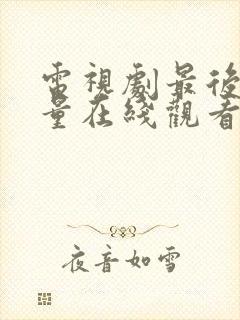 電視劇最後
量在綫觀看
夜音如雪